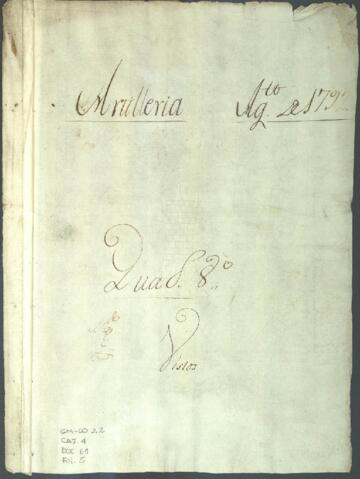 Artilleria Ag.to de 179
Quad. 8.o
Vistos
GM-CO 22
CAJ. 4
DOC 69
FOL. 5